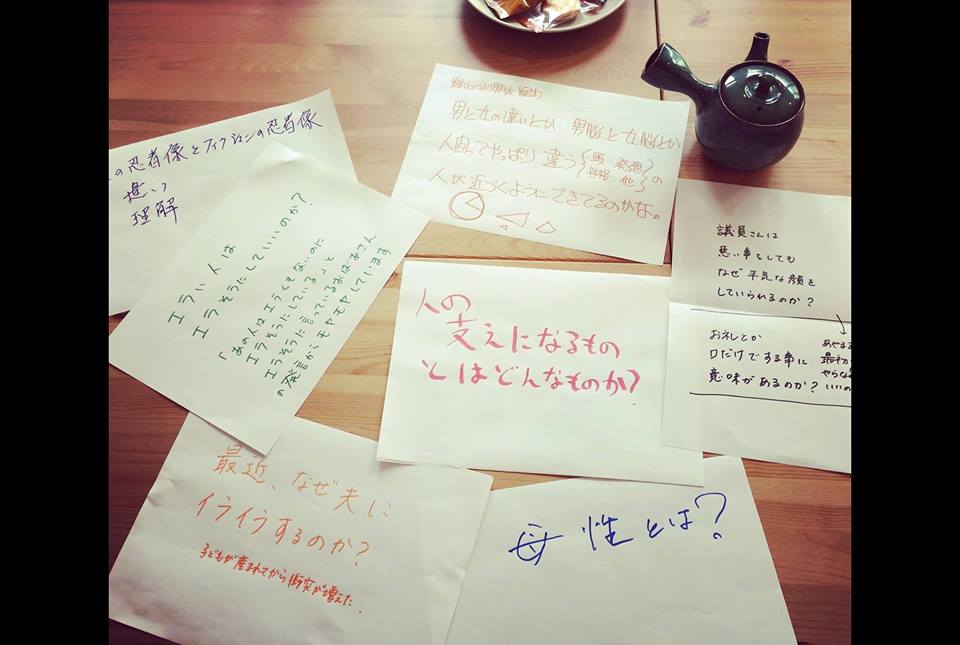 の忍者像とフィクションの忍者像
違い
理解
男と女の違いとか 男脳と女脳とか
人間ってやっぱり 違う
の
人が近づくようにできてるのかな。
エラい人は
エラそうにしていいのか?
「あの人はエラくもないのに
エラそうにしている」と
エラそうに言っているおばあさん
の発言がモヤモヤしています
人の
支えになるもの
とはどんなものか?
議員さんは
悪い事をしても
なぜ平気な顔を
していられるのか?
お礼とか
口だけでする事に
意味があるのか?
あやまる
最初か
やらな
いいの
最近、なぜ夫に
イライラするのか?
子どもが産まれてから衝突が増えた。
母性とは?